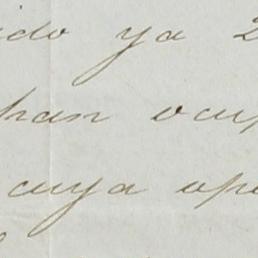 ido ya 2
han ocup
cuya ope